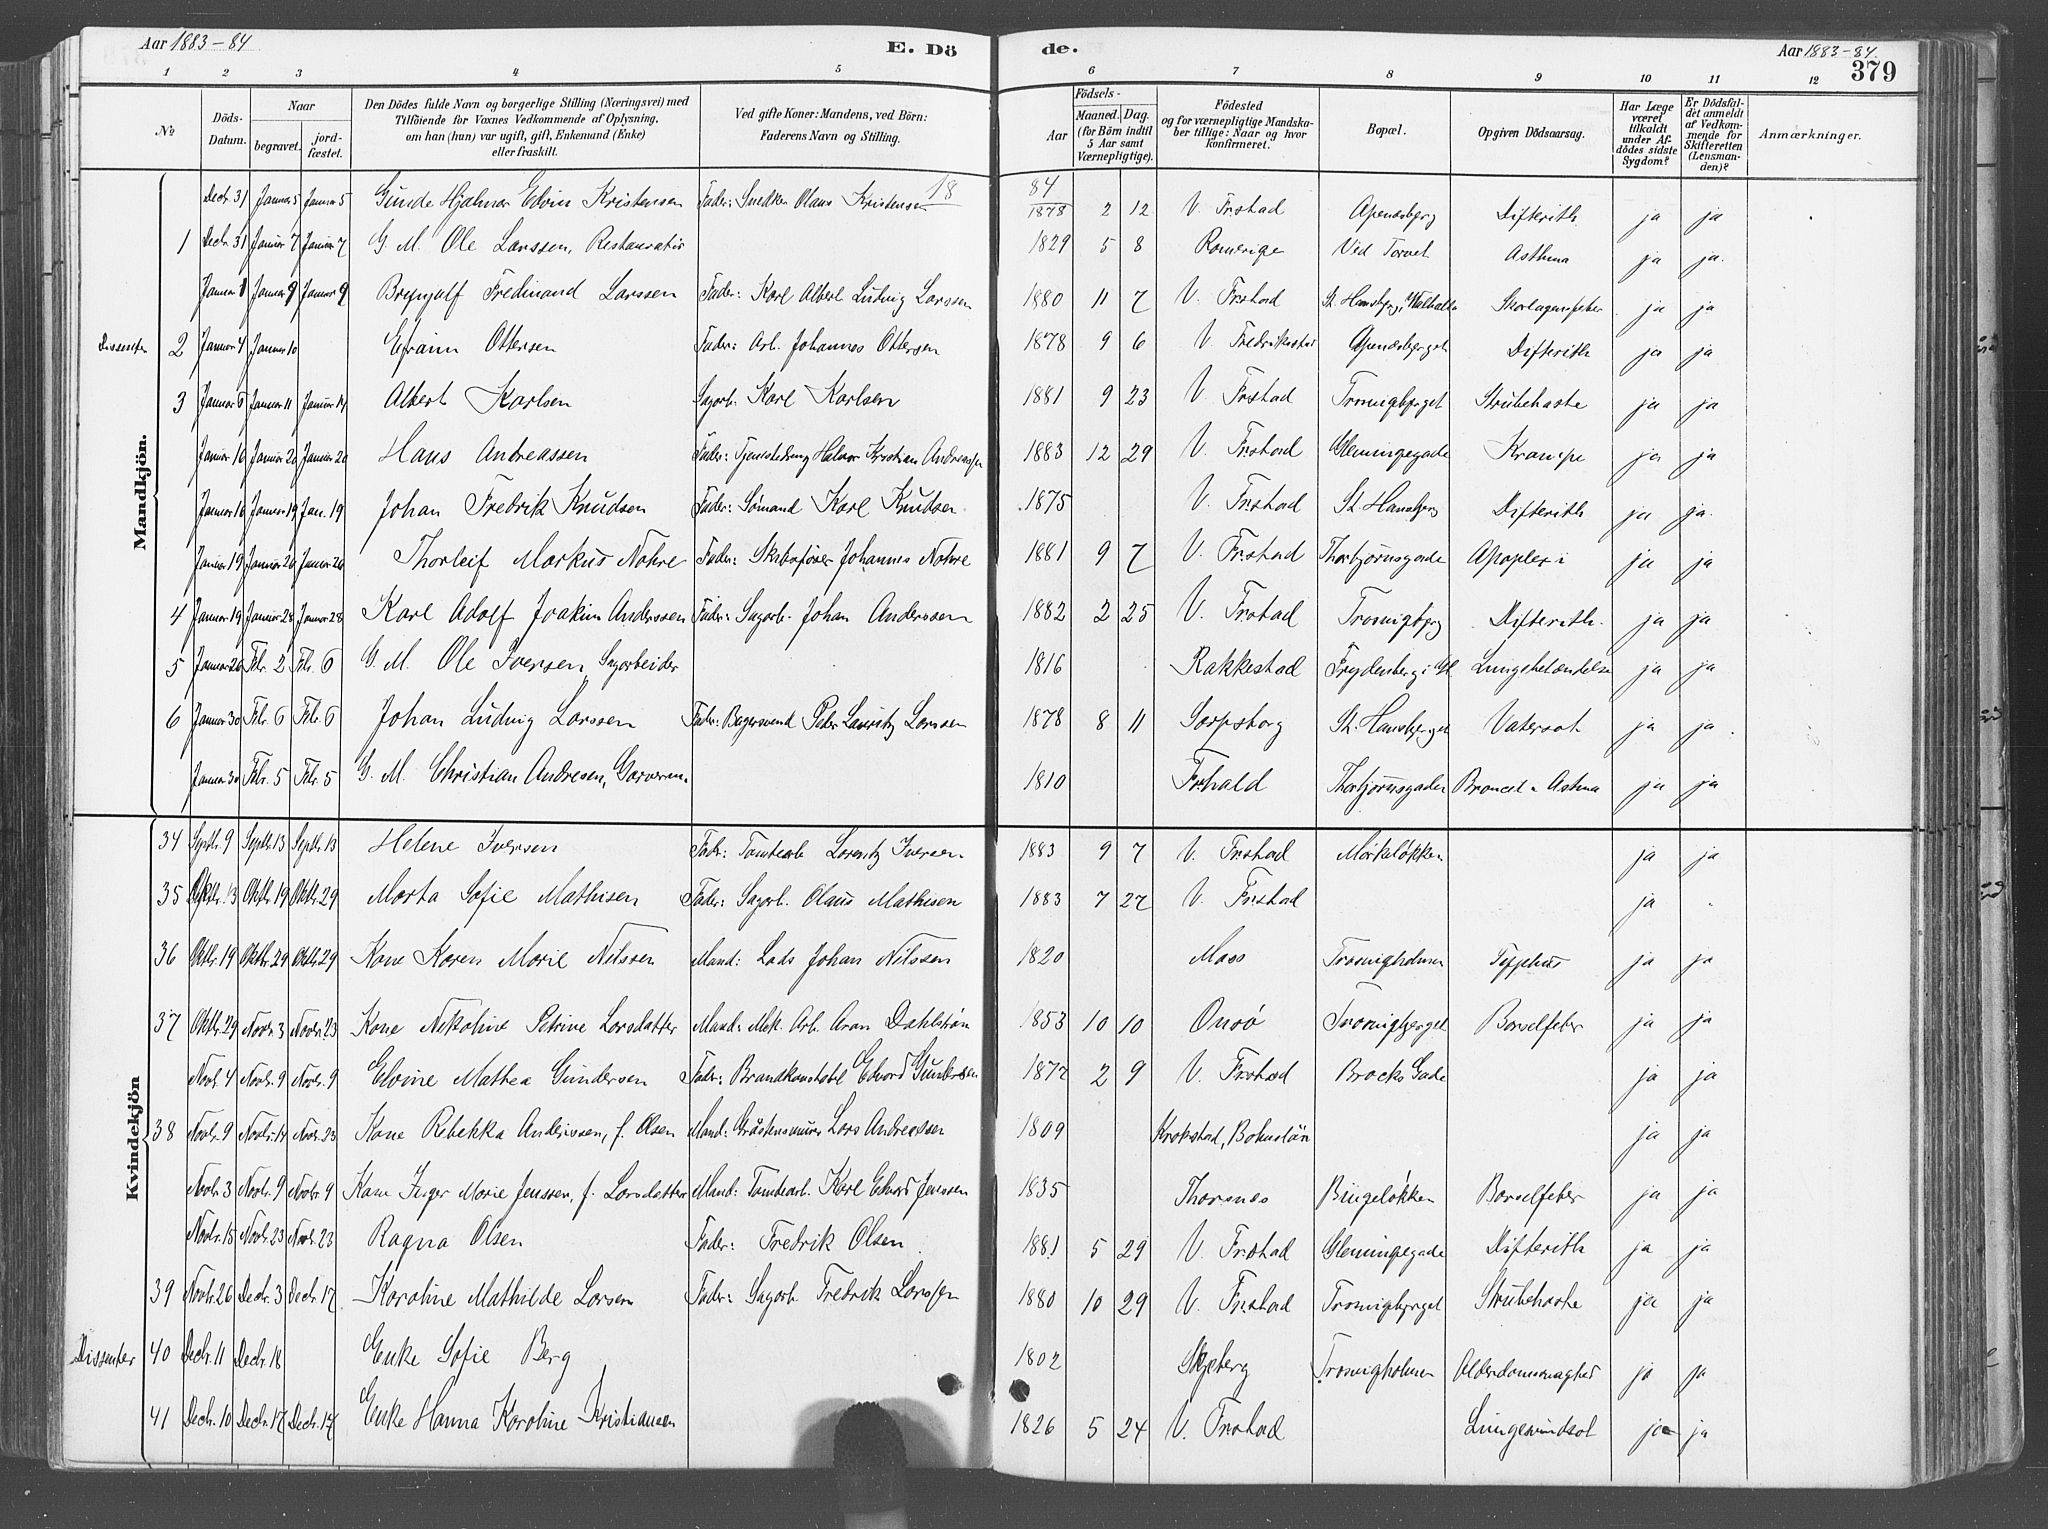 Aar 1883-84
E. Dö
de.
Aar 1883-84.
379
1 2 3 4 5 6 7 8 9 10 11 12
No
Döds-Datum.
Naar
begravet.
jord-fæstet.
Den Dödes fulde Navn og borgerlige Stilling (Næringsvei) med
Tilföiende for Voxnes Vedkommende af Oplysning,
om han (hun) var ugift, gift, Enkemand (Enke)
eller fraskilt.
Ved gifte Koner: Mandens, ved Börn:
Faderens Navn og Stilling.
Födsels-
Aar
Maaned. Dag.
(for Börn indtil
5 Aar samt
Værnepligtige).
Födested
og for værnepligtige Mandska-
ber tillige: Naar og hvor
konfirmeret.
Bopæl.
Opgiven Dödsaarsag.
Har Læge
været
tilkaldt
under Af-
dödes sidste
Sygdom?
Er Dödsfal-
det anmeldt
af Vedkom-
mende for
Skifteretten
(Lensman-
den)?
Anmærkninger.
Mandkjön.
1884
Decbr. 31 Januar 5 Januar 5 Gunde Hjalmar Edvin Kristensen Fader: Snedker Olaus Kristensen 1878 2 12 V. Frstad Apenæsbjerg Difterith ja ja
1 Decbr. 31 Januar 7 Januar 7 G. M. Ole Larssen, Restauratør 1829 5 8 Romerige Ved Torvet Asthma ja ja.
Januar 1 Januar 9 Januar 9 Brynjulf Fredinand Larssen Fader: Karl Albert Ludvig Larssen 1880 11 7 V. Frstad St. Hansbjerg, Walhalla Skarlagensfeber ja ja
Dissenter 2 Januar 4 Januar 10 Efraim Ottersen Fader: Arb. Johannes Ottersen 1878 9 6 V. Fredrikstad Apenæsbjerget Difterith ja ja
3 Januar 6 Januar 11 Januar 14 Albert Karlsen Sagarb. Karl Karlsen 1881 9 23 V. Frstad Trosvigbjerget Strubehoste ja ja
Januar 16 Januar 20 Januar 20 Hans Andreassen Fader: Halvor Kristian Andreassen 1883 12 29 V. Frstad Glemmingegade Krampe ja ja
Januar 16 Januar 19 Jan. 19 Johan Fredrik Knudsen Fader: Sømand Karl Knudsen 1875 V. Frstad St. Hansbjerg Difterith ja ja.
Januar 19 Januar 26 Januar 26 Thorleif Markus Nohre Fader: Skibsfører Johannes Nohre 1881 9 7 V. Frstad Thorbjørnsgade Apoplexi ja ja
4 Januar 19 Januar 28 Januar 28 Karl Adolf Joakim Anderssen Fader: Sagarb. Johan Anderssen 1882 2 25 V. Frstad Trosvigbjerg Difterith. ja ja
5 Januar 26 Febr. 2 Febr. 6 G. M. Ole Iversen, Sagarbeider 1816 Rakkestad Frydenberg i Gl. Lungebetændelse ja ja
6 Januar 30 Febr. 6 Febr. 6 Johan Ludvig Larssen Fader: Bagersvend Peter Lauritz Larssen 1878 8 11 Sarpsborg St. Hansbjerget Vatersot ja ja
Januar 30 Febr. 5 Febr. 5 G. M. Christian Andresen, 1810 Frhald Thorbjørnsgaden Astma ja ja
Kvindekjön
34 Septbr. 9 Septbr. 13 Septbr. 13 Helene Iversen Fader: Tomtearb. Lorentz Iversen 1883 9 7 V. Frstad Mørkeløkken ja ja
35 Oktbr. 13 Oktbr. 19 Oktbr. 29 Marta Sofie Mathisen Fader: Sagarb. Olaus Mathisen 1883 7 27 V. Frstad ja
36 Oktbr. 19 Oktbr. 29 Oktbr. 29 Kone Karen Marie Nilssen Mand: Lods Johan Nilssen 1820 Moss Trosvigholmen Typhus ja ja
37 Oktbr. 29 Novbr. 3 Novbr. 23 Kone Nikoline Petrine Larsdatter Mand: Mek. Arb. Aron Dahlstrøm 1853 10 10 Onsø Trosvigbjerget Barselfeber ja ja
Novbr. 4 Novbr. 9 Novbr. 9 Elvine Mathea Gundersen Fader: Brandkonstabel Edvard Gundersen 1877 2 9 V. Frstad Brocks Gade ja ja
38 Novbr. 9 Novbr. 14 Novbr. 23 Kone Rebekka Anderssen, f. Olsen Mand: Gråstensmurer Lars Andreassen 1809 Krokstad, Bohuslän ja ja
Novbr. 3 Novbr. 9 Novbr. 9 Kone Inger Marie Jenssen, f. Larsdatter Mand: Tomtearb. Karl Edvard Jenssen 1835 Thorsnes Bingeløkken Barselfeber ja ja
Novbr. 15 Novbr. 23 Novbr. 23 Ragna Olsen Fader: Fredrik Olsen 1881 5 29 V. Frstad Glemmingegade Difterith ja ja
39 Novbr. 26 Decbr. 3 Decbr. 17 Karoline Mathilde Larsen Fader: Sagarb. Fredrik Larssen 1880 10 29 V. Frstad Trosvigbjerget Strubehoste ja ja
Dissenter 40 Decbr. 11 Decbr. 18 Enke Sofie Berg 1802 Skjeberg Trosvigholmen Alderdomssvaghed ja ja
41 Decbr. 10 Decbr. 17 Decbr. 17 Enke Hanna Karoline Kristiansen 1826 5 24 V. Frstad Lungesvindsot ja ja